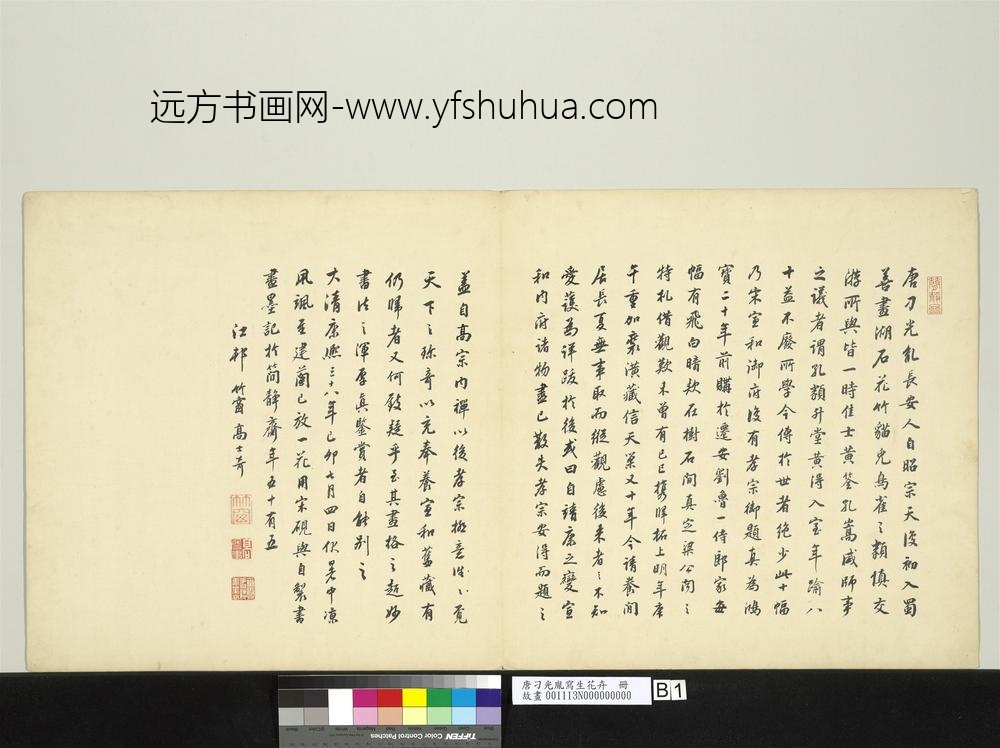 远方书画网-www.yfshuhua.com
唐刁光胤長安人自昭宗天復初入蜀
善畫湖石花竹貓兔鳥雀之類慎交
游所與皆一時佳士黃筌孔嵩咸師事
之議者謂孔類升堂黃得入室年踰八
十益不廢所學今傳於世者絕少此十幅
乃宋宣和御府後有孝宗御題真為鴻
寶二十年前購於遷安劉魯一侍郎家每
幅有飛白暗款在樹石間真定梁公聞之
特札借觀歎未曾有己巳攜歸柘上明年庚
午重加裝潢藏信天巢又十年今請養閒
居長夏無事取而縱觀慮後來者之不知
愛護為詳跋於後或曰自靖康之變宣
和內府諸物盡已散失孝宗安得而題之
蓋自高宗內禪以後孝宗極意購覓
天下之珍奇以充奉養宣和舊藏有
仍歸者又何致疑乎至其畫格之超妙
書法之渾厚真鑒賞者自能別之
大清康熙三十八年己卯七月四日伏暑中涼
風颯至建蘭已放一花用宋硯與自製書
畫墨記於簡靜齋年五十有五
江邨竹窗高士奇
唐刁光胤寫生花卉 冊
故畫 001113N000000000
B1
TIFFEN Color Control Patches